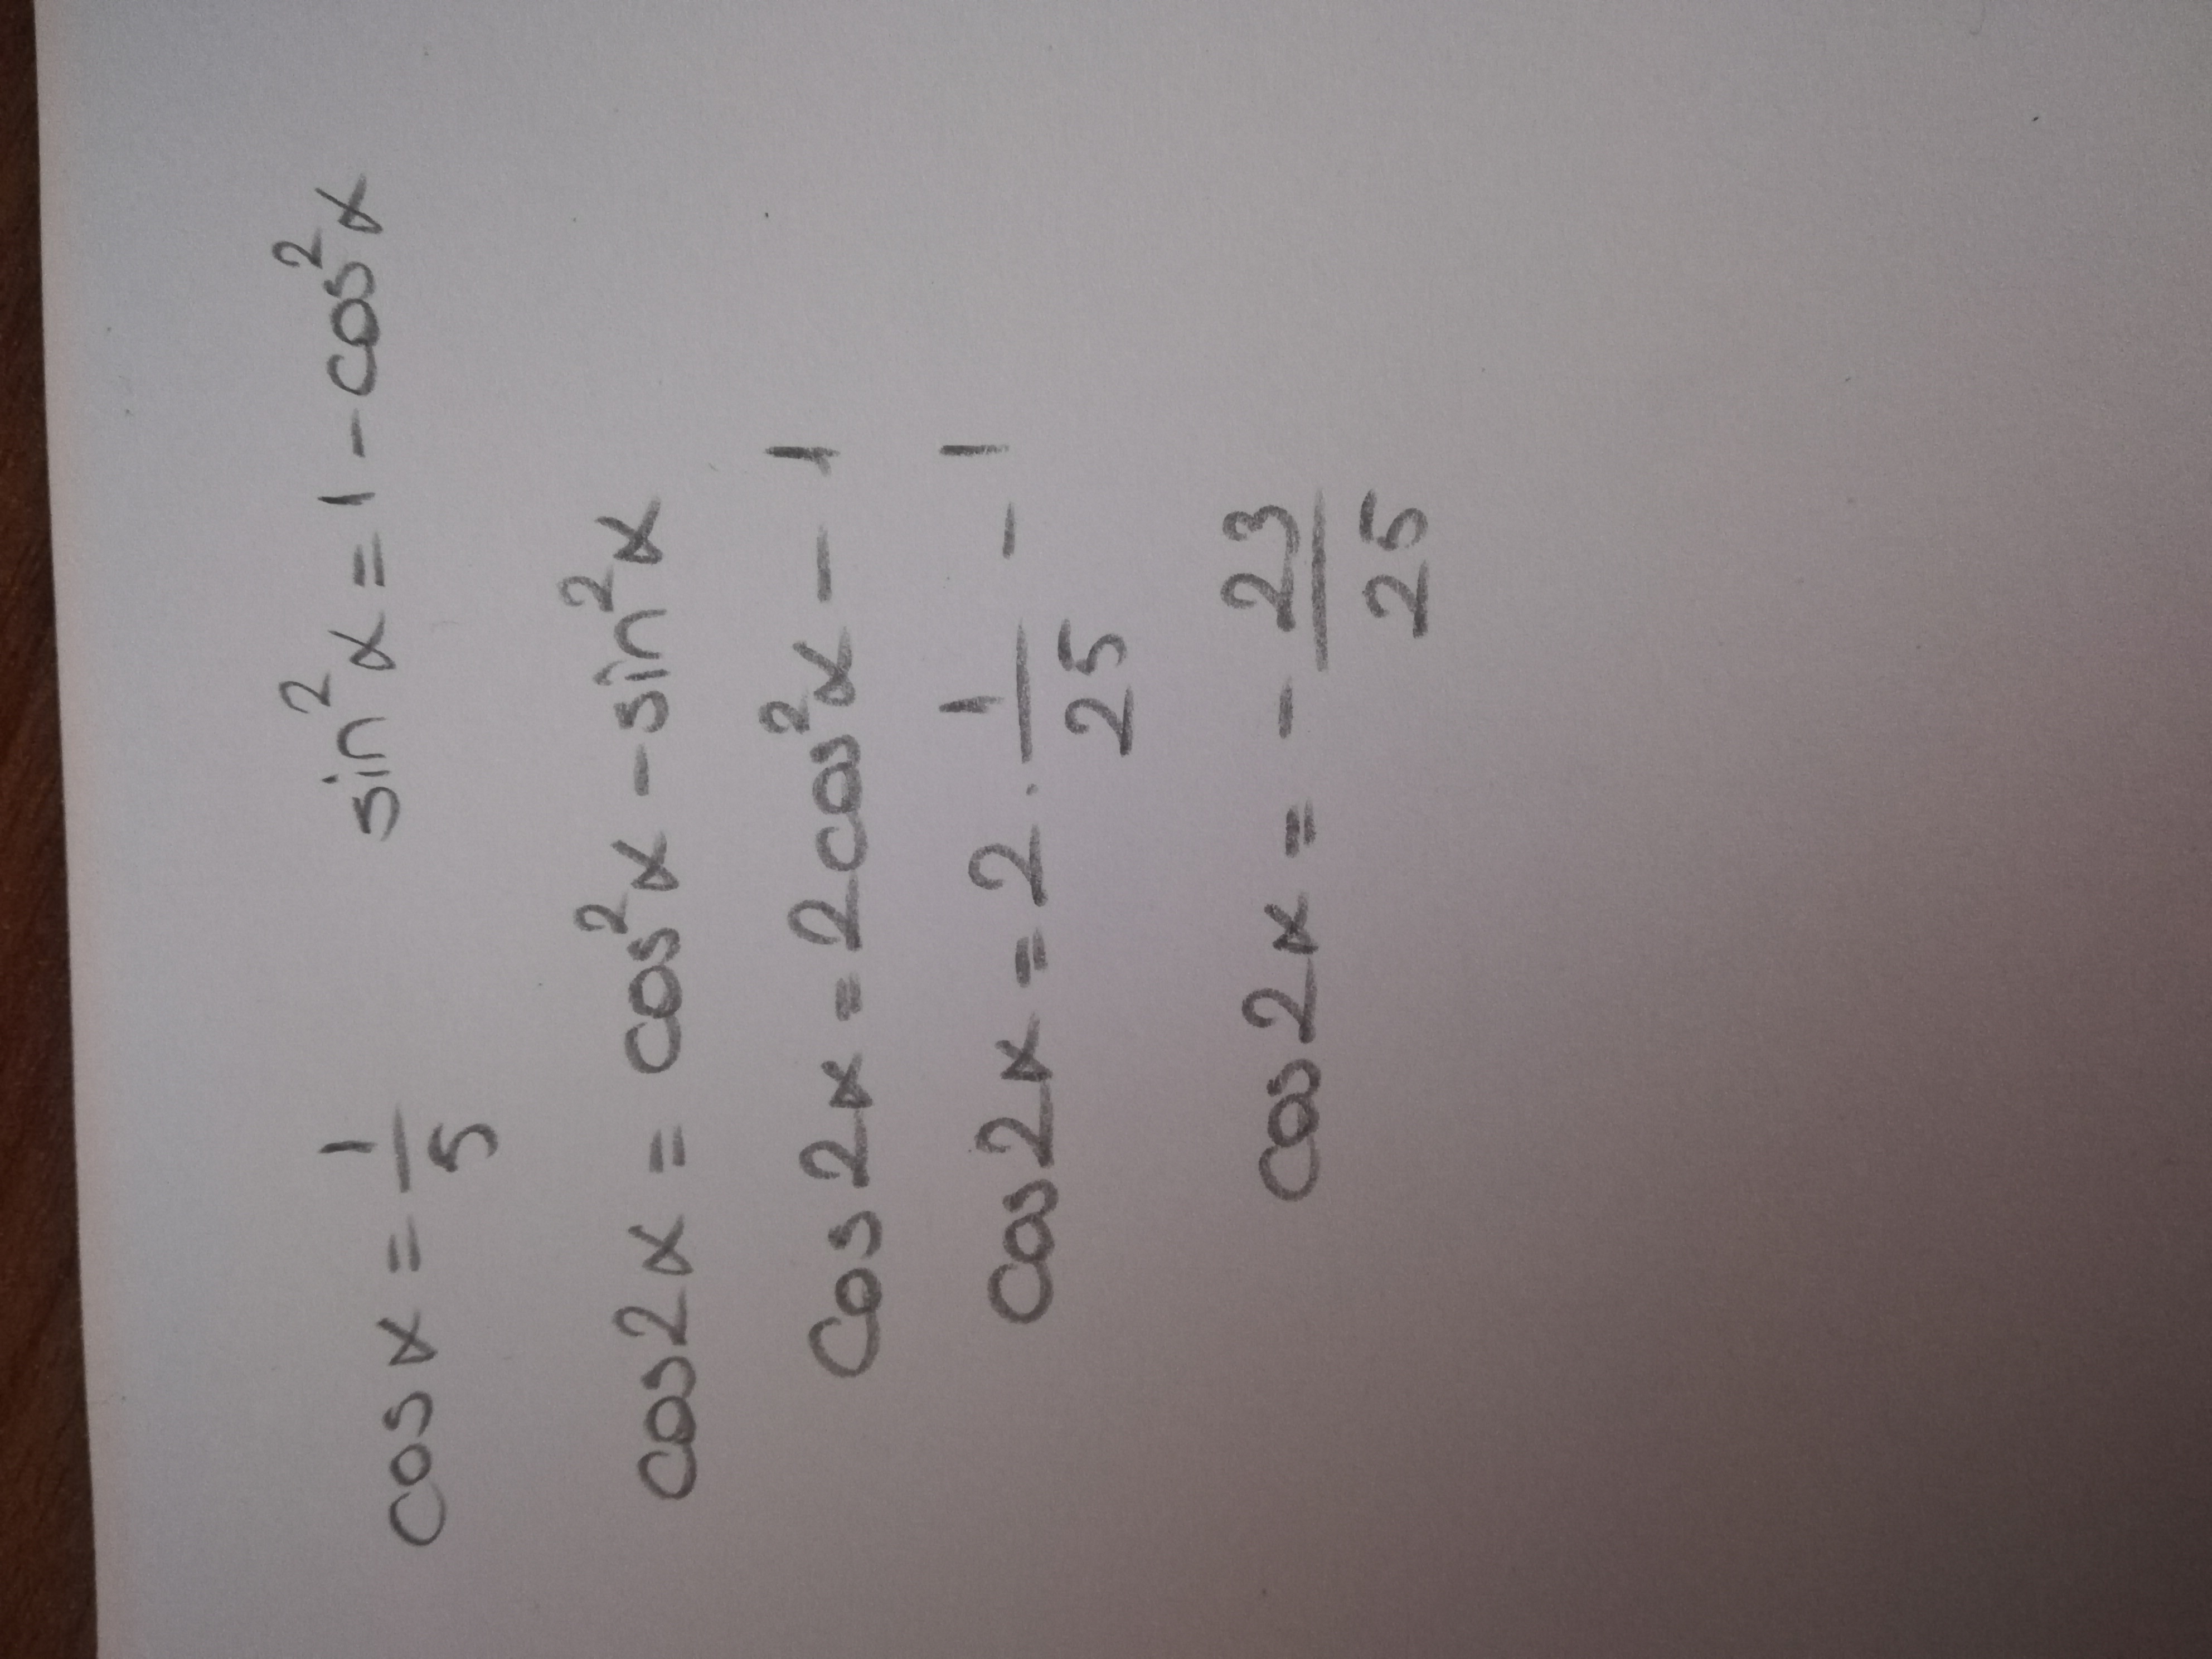 cos x = 1/5   sin²x = 1 - cos²x
cos2x = cos²x - sin²x
cos2x = 2cos²x - 1
cos2x = 2 · 1/25 - 1
cos2x = - 23/25